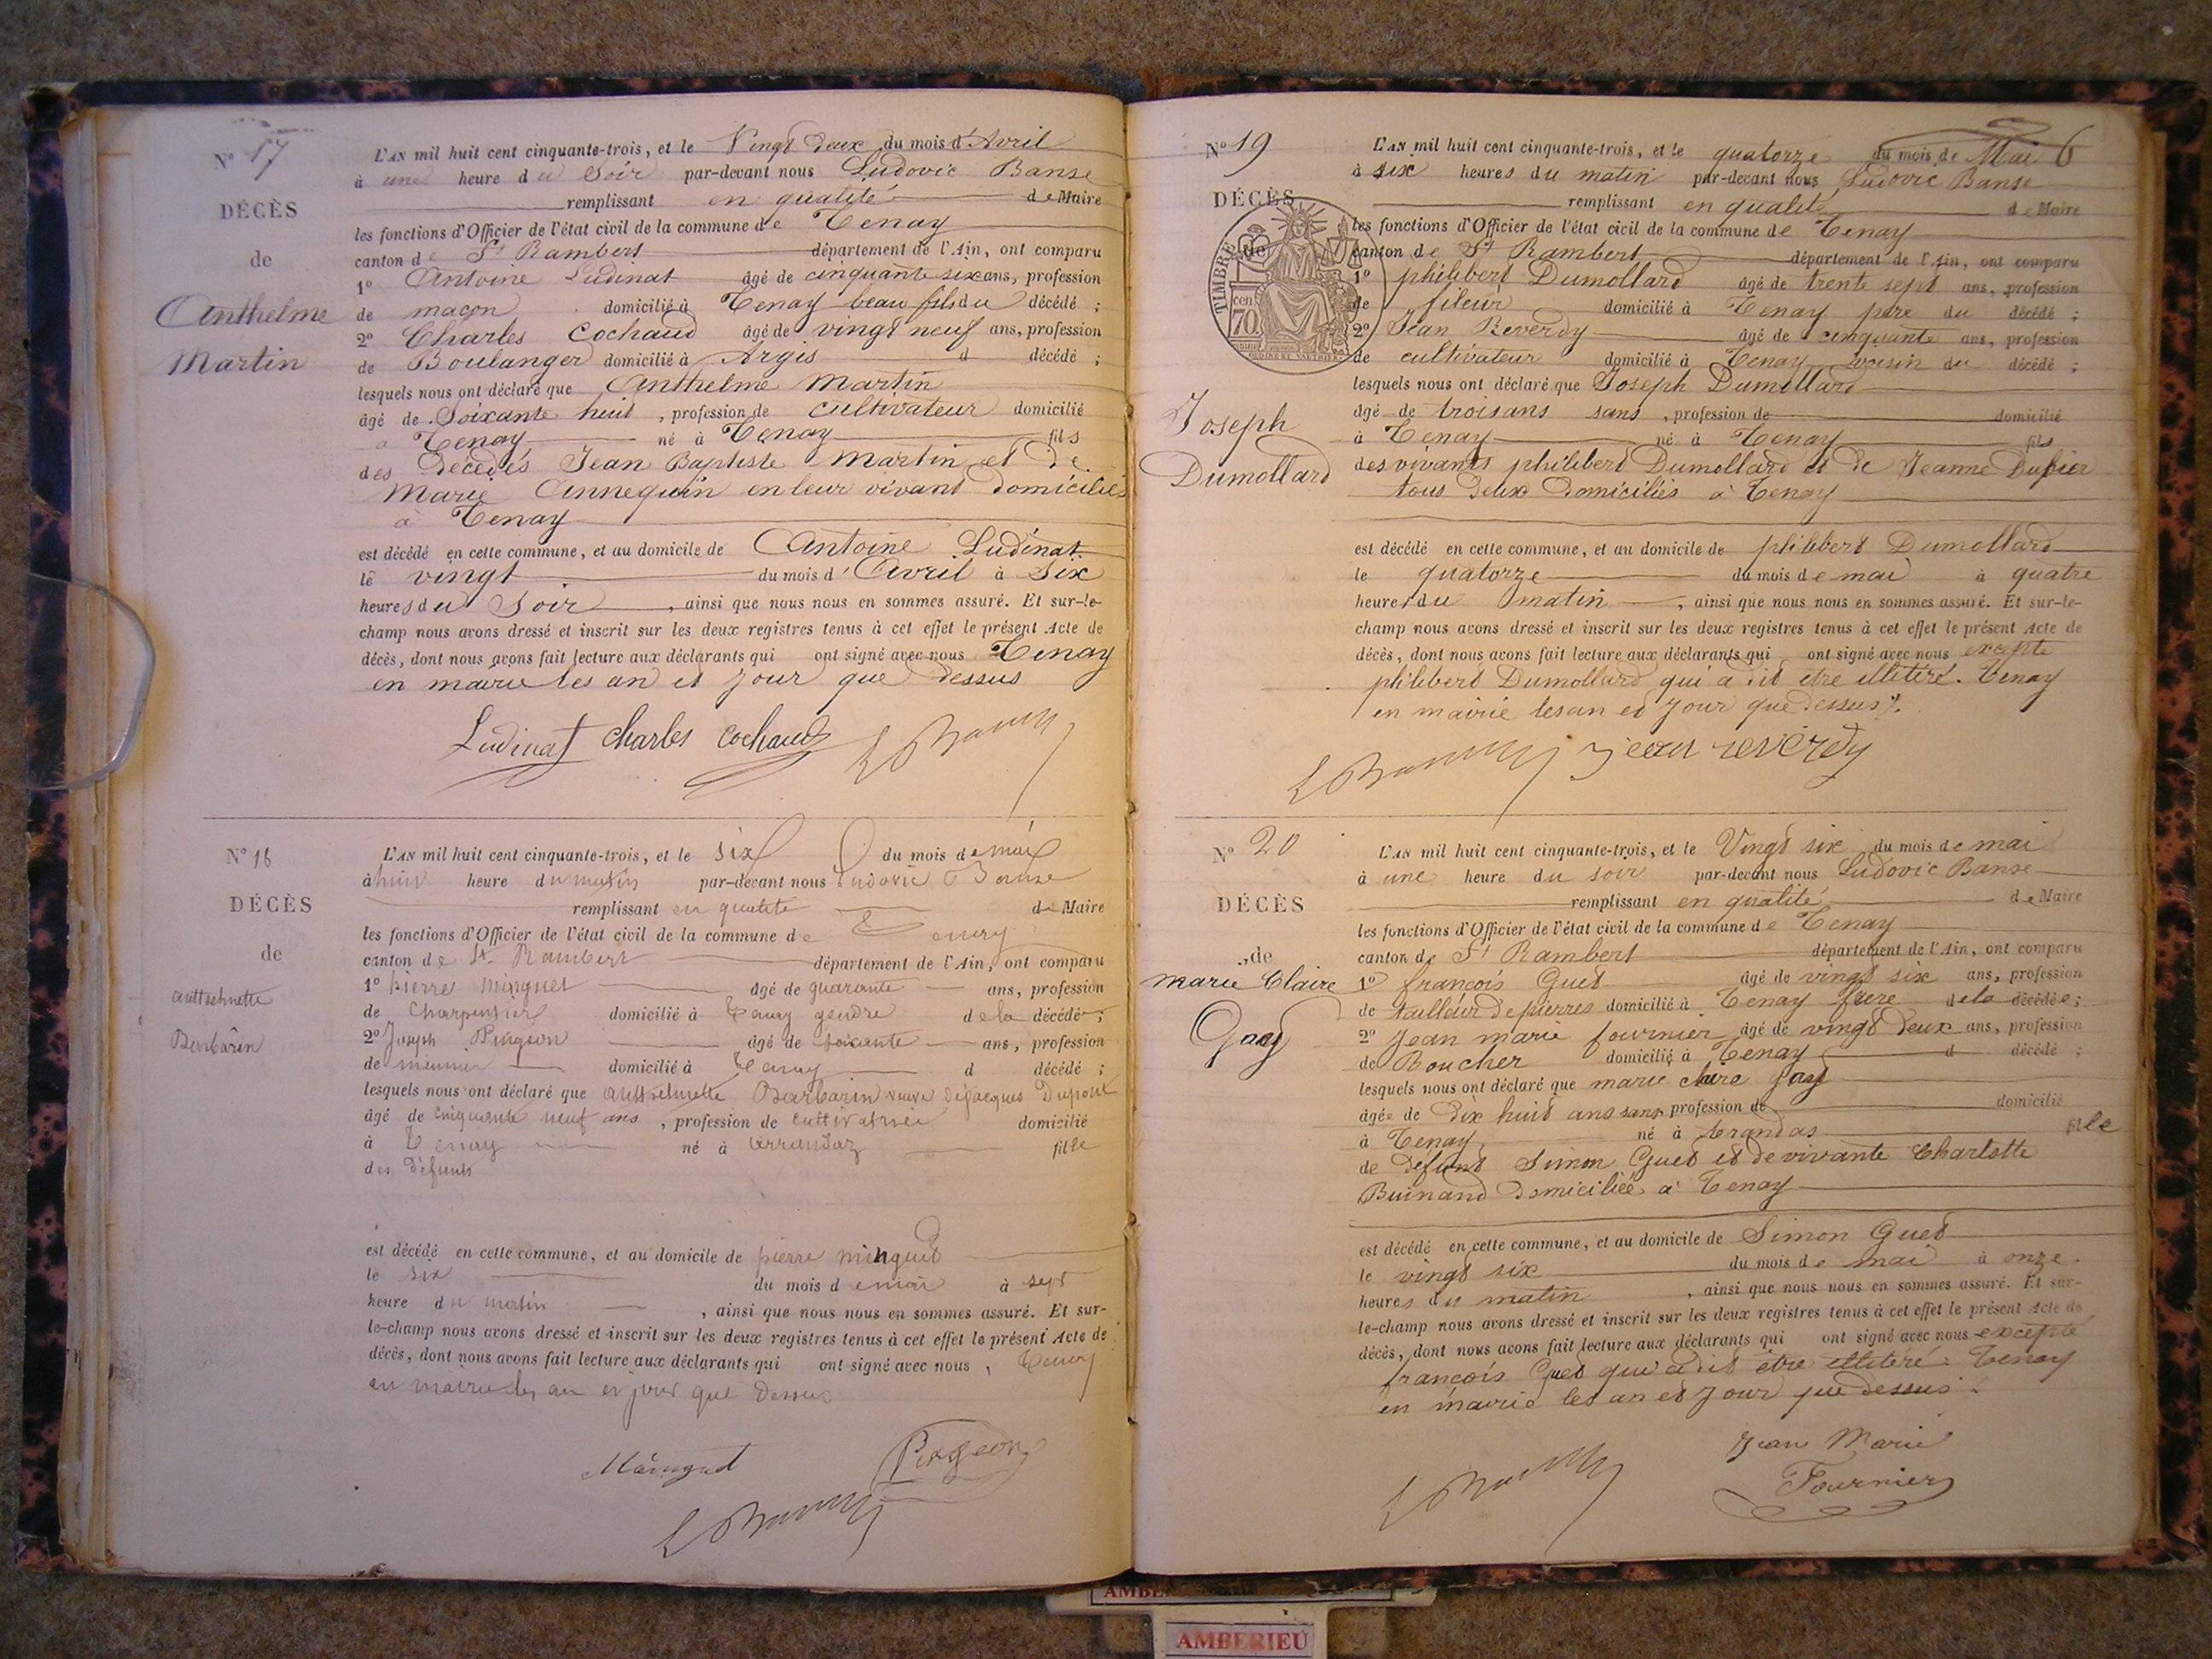 N° 17
DÉCÈS
de
Anthelme
Martin
L'AN mil huit cent cinquante-trois, et le Vingt deux du mois d'Avril
à une heure du Soir par-devant nous Ludovic Banse
remplissant en qualité de Maire
les fonctions d'Officier de l'état civil de la commune de Tenay
canton de St Rambert département de l'Ain, ont comparu
1° Antoine Ludinat âgé de cinquante six ans, profession
de maçon domicilié à Tenay beau fils du décédé ;
2° Charles Cochaud âgé de vingt neuf ans, profession
de Boulanger domicilié à Argis d décédé ;
lesquels nous ont déclaré que Anthelme Martin
âgé de Soixante huit , profession de cultivateur domicilié
à Tenay né à Tenay fils
des décédés Jean Baptiste Martin et de
Marie Annequin en leur vivant domiciliés
à Tenay
est décédé en cette commune, et au domicile de Antoine Ludinat
le vingt du mois d'Avril à Six
heures du Soir , ainsi que nous nous en sommes assuré. Et sur-le-
champ nous avons dressé et inscrit sur les deux registres tenus à cet effet le présent Acte de
décès, dont nous avons fait lecture aux déclarants qui ont signé avec nous Tenay
en mairie les an et jour que dessus
Ludinat Charles Cochaud L Banse
N° 16
DÉCÈS
de
Barbarin
L'AN mil huit cent cinquante-trois, et le six du mois de mai
à huit heure du matin par-devant nous Ludovic Banse
remplissant en qualité de Maire
les fonctions d'Officier de l'état civil de la commune de Tenay
canton de St Rambert département de l'Ain, ont comparu
1° pierre Minguet âgé de quarante ans, profession
de Charpentier domicilié à Tenay gendre de la décédée ;
2° Joseph Pingeon âgé de soixante ans, profession
de meunier domicilié à Tenay d décédé ;
lesquels nous ont déclaré que Barbarin veuve de jacques Dupont
âgé de cinquante neuf ans , profession de cultivatrice domicilié
à Tenay né à Arrandaz fille
des défunts
est décédé en cette commune, et au domicile de pierre minguet
le six du mois de mai à sept
heure du matin , ainsi que nous nous en sommes assuré. Et sur-
le-champ nous avons dressé et inscrit sur les deux registres tenus à cet effet le présent Acte de
décès, dont nous avons fait lecture aux déclarants qui ont signé avec nous , Tenay
en mairie les an et jour que Dessus
Pingeon
L Banse
6
N° 19
DÉCÈS
de
TIMBRE
cen
70
Joseph
Dumollard
L'AN mil huit cent cinquante-trois, et le quatorze du mois de Mai
à six heures du matin par-devant nous Ludovic Banse
remplissant en qualité de Maire
les fonctions d'Officier de l'état civil de la commune de Tenay
canton de St Rambert département de l'Ain, ont comparu
1° philibert Dumollard âgé de trente sept ans, profession
de fileur domicilié à Tenay père du décédé ;
2° Jean Reverdy âgé de cinquante ans, profession
de cultivateur domicilié à Tenay voisin du décédé ;
lesquels nous ont déclaré que Joseph Dumollard
âgé de trois ans sans , profession de domicilié
à Tenay né à Tenay fils
des vivants philibert Dumollard et de Jeanne
tous deux domiciliés à Tenay
est décédé en cette commune, et au domicile de philibert Dumollard
le quatorze du mois de mai à quatre
heures du matin , ainsi que nous nous en sommes assuré. Et sur-le-
champ nous avons dressé et inscrit sur les deux registres tenus à cet effet le présent Acte de
décès, dont nous avons fait lecture aux déclarants qui ont signé avec nous excepté
philibert Dumollard qui a dit être illitéré. Tenay
en mairie les an et jour que dessus
L Banse jean reverdy
N° 20
DÉCÈS
de
marie Claire
Gay
L'AN mil huit cent cinquante-trois, et le Vingt six du mois de mai
à une heure du soir par-devant nous Ludovic Banse
remplissant en qualité de Maire
les fonctions d'Officier de l'état civil de la commune de Tenay
canton de St Rambert département de l'Ain, ont comparu
1° françois Guet âgé de vingt six ans, profession
de tailleur de pierres domicilié à Tenay frere de la décédée ;
2° Jean marie fournier âgé de vingt deux ans, profession
de Boucher domicilié à Tenay d décédé ;
lesquels nous ont déclaré que marie claire Gay
âgée de dix huit ans sans profession de domicilié
à Tenay né à fille
de défunt Simon Guet et de vivante Charlotte
Buinand domiciliée à Tenay
est décédé en cette commune, et au domicile de Simon Guet
le vingt six du mois de mai à onze
heures du matin , ainsi que nous nous en sommes assuré. Et sur-
le-champ nous avons dressé et inscrit sur les deux registres tenus à cet effet le présent Acte de
décès, dont nous avons fait lecture aux déclarants qui ont signé avec nous excepté
françois Guet qui a dit être illitéré. Tenay
en mairie les an et jour que dessus
L Banse Jean Marie
Fournier
AMBERIEU